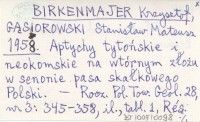 BIRKENMAJER Krzysztof,
GĄSIOROWSKI Stanisław Mateusz
1958. Aptychy tytońskie i
neokomskie na wtórnym złożu
w senonie pasa skałkowego
Polski. — Rocz. Pol. Tow. Geol. 28,
nr 3: 345-358, il., tabl. 1, Rés.